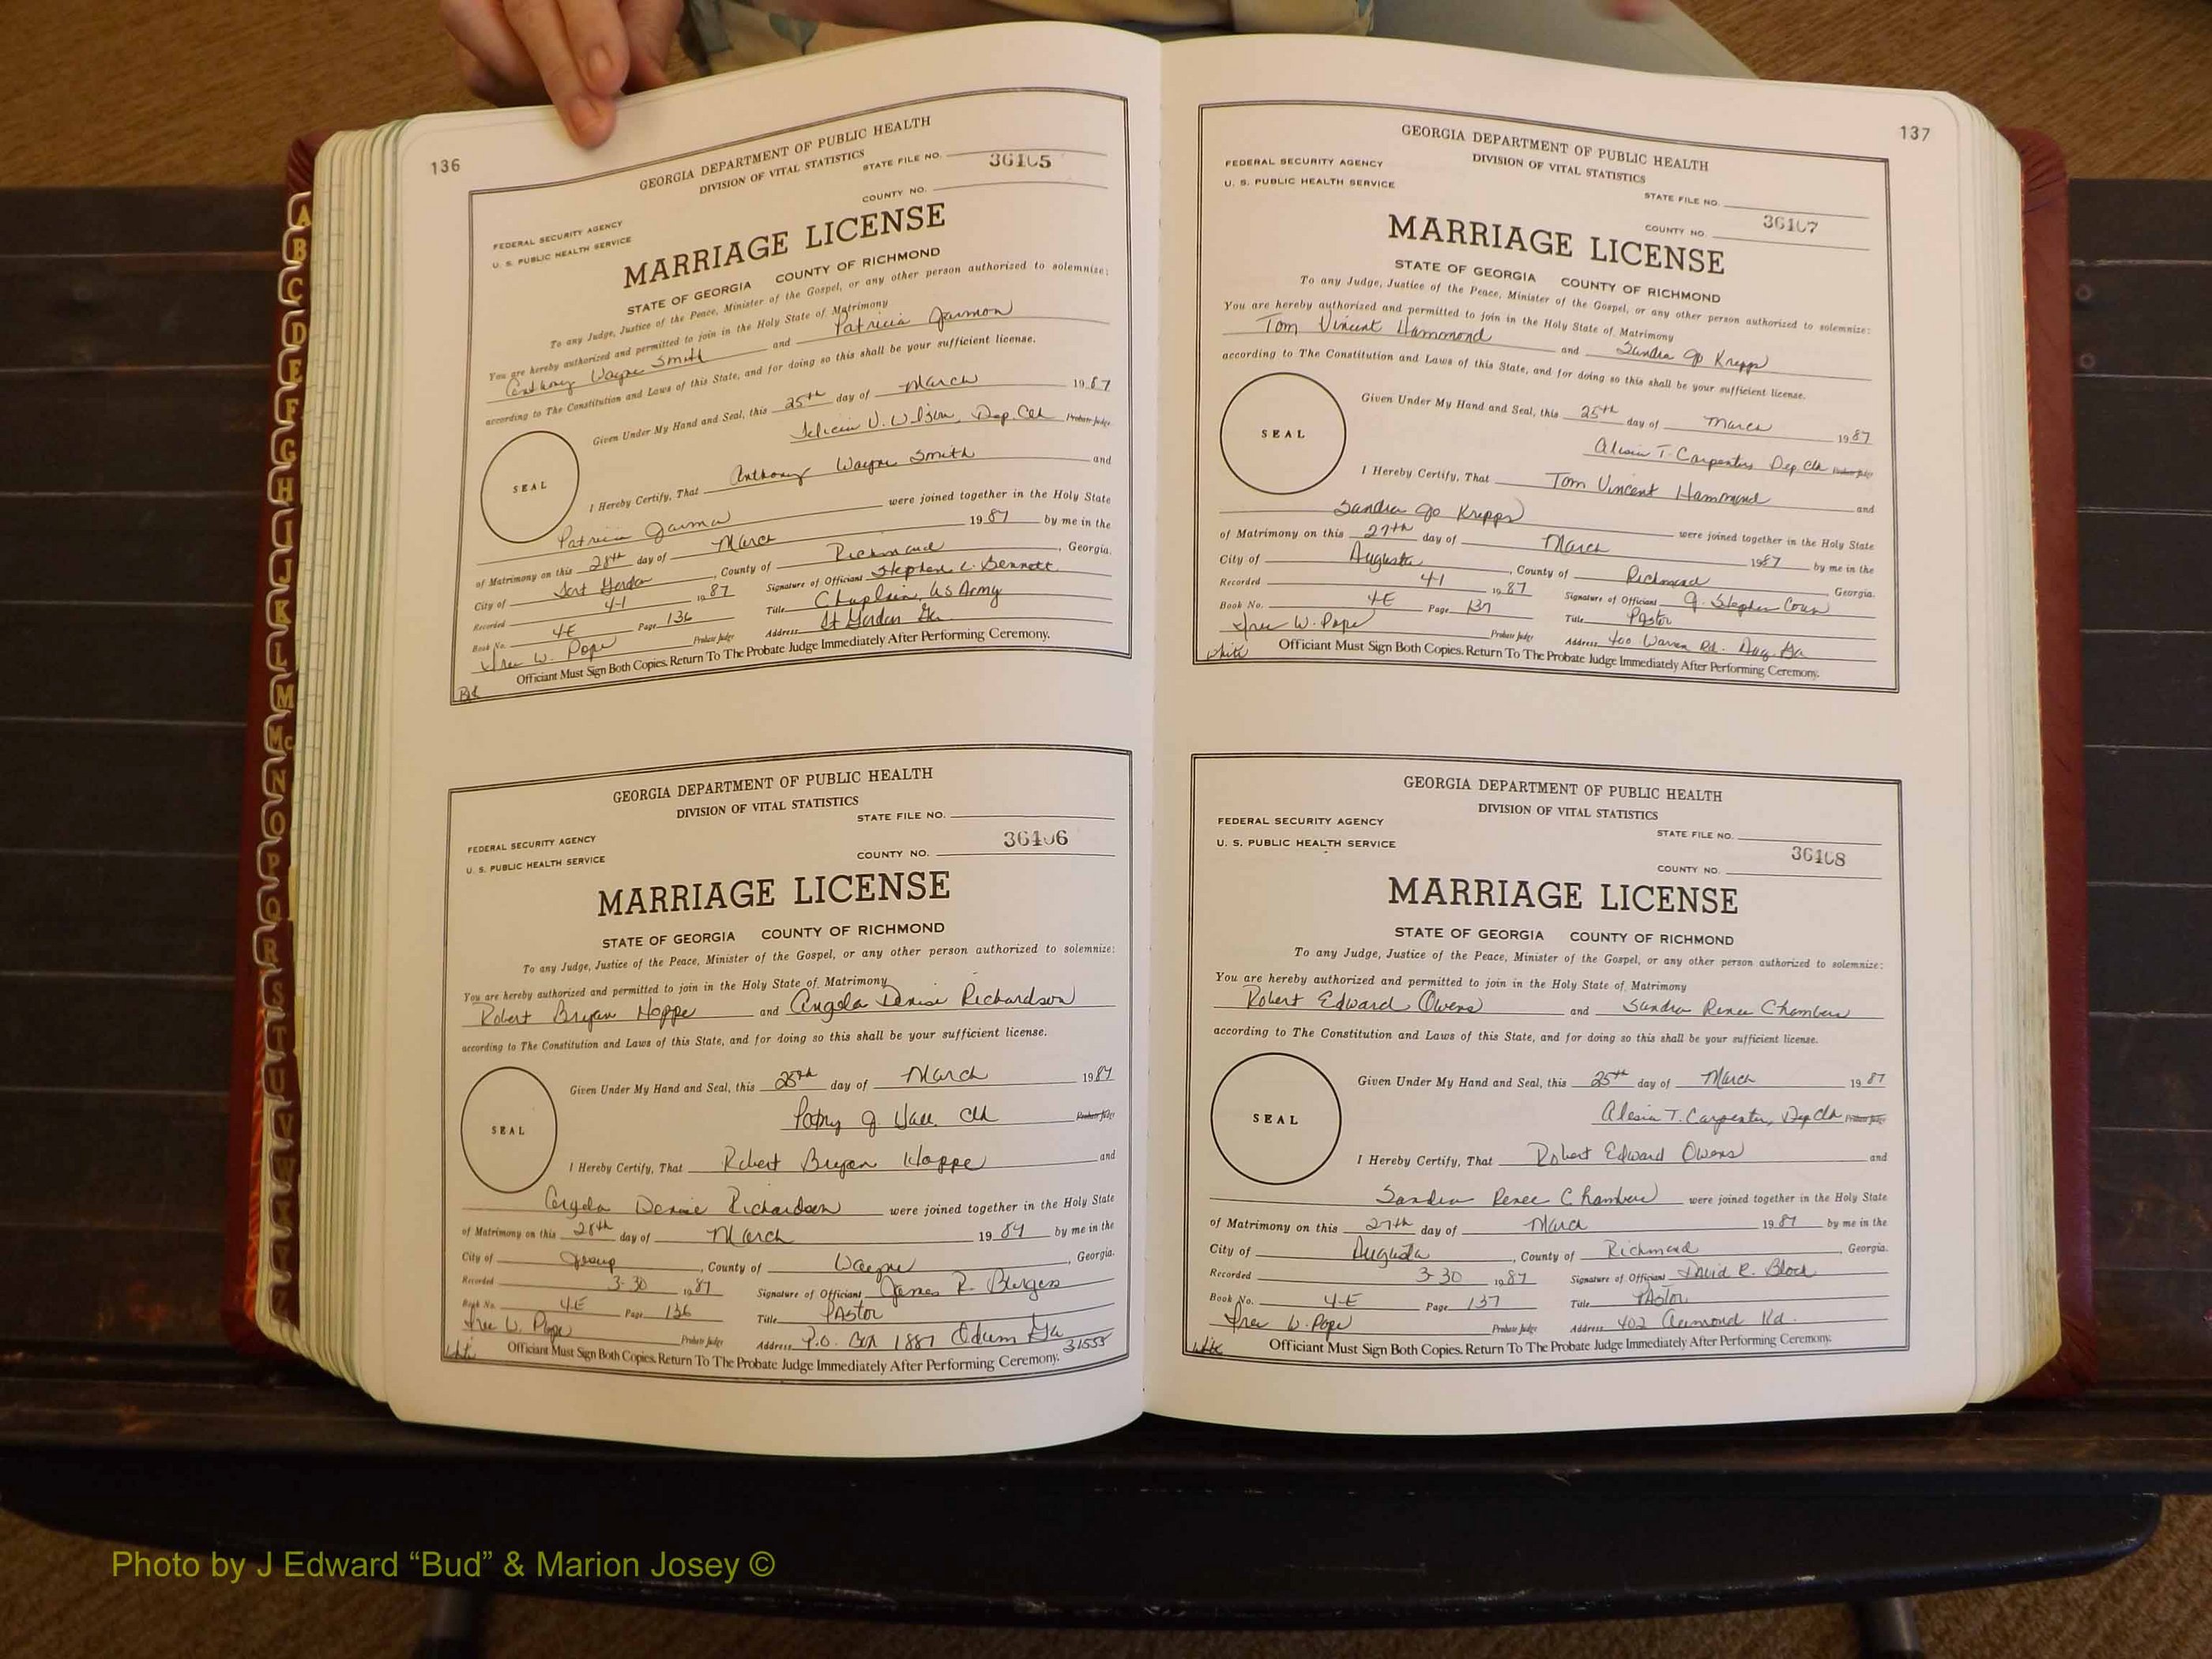 136
GEORGIA DEPARTMENT OF PUBLIC HEALTH
DIVISION OF VITAL STATISTICS
STATE FILE NO.
36105
COUNTY NO.
FEDERAL SECURITY AGENCY
U. S. PUBLIC HEALTH SERVICE
MARRIAGE LICENSE
STATE OF GEORGIA COUNTY OF RICHMOND
To any Judge, Justice of the Peace, Minister of the Gospel, or any other person authorized to solemnize:
You are hereby authorized and permitted to join in the Holy State of Matrimony
Anthony Wayne Smith and Patricia
according to The Constitution and Laws of this State, and for doing so this shall be your sufficient license.
Given Under My Hand and Seal, this 25th day of March 1987
Felicia V. Wilson, Dep. Clk Probate Judge
SEAL
I Hereby Certify, That Anthony Wayne Smith and
Patricia were joined together in the Holy State
of Matrimony on this 28th day of March 1987 by me in the
City of Fort Gordon, County of Richmond, Georgia.
Recorded 4-1 1987 Signature of Officiant Stephen L. Bennett
Book No. 4-E Page 136 Title Chaplain, US Army
W. Pope Probate Judge Address Ft Gordon Ga.
Officiant Must Sign Both Copies. Return To The Probate Judge Immediately After Performing Ceremony.
GEORGIA DEPARTMENT OF PUBLIC HEALTH
DIVISION OF VITAL STATISTICS
STATE FILE NO.
36106
FEDERAL SECURITY AGENCY
U. S. PUBLIC HEALTH SERVICE
COUNTY NO.
MARRIAGE LICENSE
STATE OF GEORGIA COUNTY OF RICHMOND
To any Judge, Justice of the Peace, Minister of the Gospel, or any other person authorized to solemnize:
You are hereby authorized and permitted to join in the Holy State of Matrimony
Robert Bryan Hoppe and Angela Denise Richardson
according to The Constitution and Laws of this State, and for doing so this shall be your sufficient license.
Given Under My Hand and Seal, this 25th day of March 1987
J. Clk Probate Judge
SEAL
I Hereby Certify, That Robert Bryan Hoppe and
Angela Denise Richardson were joined together in the Holy State
of Matrimony on this 28th day of March 1987 by me in the
City of Jesup, County of Wayne, Georgia.
Recorded 3-30 1987 Signature of Officiant James R. Burgess
Book No. 4-E Page 136 Title Pastor
W. Pope Probate Judge Address P.O. Box 1887 Odum Ga 31555
White Officiant Must Sign Both Copies. Return To The Probate Judge Immediately After Performing Ceremony.
137
GEORGIA DEPARTMENT OF PUBLIC HEALTH
DIVISION OF VITAL STATISTICS
FEDERAL SECURITY AGENCY
U. S. PUBLIC HEALTH SERVICE
STATE FILE NO.
36107
COUNTY NO.
MARRIAGE LICENSE
STATE OF GEORGIA COUNTY OF RICHMOND
To any Judge, Justice of the Peace, Minister of the Gospel, or any other person authorized to solemnize:
You are hereby authorized and permitted to join in the Holy State of Matrimony
Tom Vincent Hammond and Sandra Jo Krepps
according to The Constitution and Laws of this State, and for doing so this shall be your sufficient license.
Given Under My Hand and Seal, this 25th day of March 1987
Alesia T. Carpenter Dep. Clk Probate Judge
SEAL
I Hereby Certify, That Tom Vincent Hammond and
Sandra Jo Krepps were joined together in the Holy State
of Matrimony on this 27th day of March 1987 by me in the
City of Augusta, County of Richmond, Georgia.
Recorded 4-1 1987 Signature of Officiant J. Stephen
Book No. 4-E Page 137 Title Pastor
W. Pope Probate Judge Address 400 Warren Rd. Aug. Ga
White Officiant Must Sign Both Copies. Return To The Probate Judge Immediately After Performing Ceremony.
GEORGIA DEPARTMENT OF PUBLIC HEALTH
DIVISION OF VITAL STATISTICS
FEDERAL SECURITY AGENCY
U. S. PUBLIC HEALTH SERVICE
STATE FILE NO.
36108
COUNTY NO.
MARRIAGE LICENSE
STATE OF GEORGIA COUNTY OF RICHMOND
To any Judge, Justice of the Peace, Minister of the Gospel, or any other person authorized to solemnize:
You are hereby authorized and permitted to join in the Holy State of Matrimony
Robert Edward Owens and Sandra Renee Chambers
according to The Constitution and Laws of this State, and for doing so this shall be your sufficient license.
Given Under My Hand and Seal, this 25th day of March 1987
Alesia T. Carpenter, Dep Clk Probate Judge
SEAL
I Hereby Certify, That Robert Edward Owens and
Sandra Renee Chambers were joined together in the Holy State
of Matrimony on this 27th day of March 1987 by me in the
City of Augusta, County of Richmond, Georgia.
Recorded 3-30 1987 Signature of Officiant David R. Block
Book No. 4-E Page 137 Title Pastor
W. Pope Probate Judge Address 402 Aumond Rd.
White Officiant Must Sign Both Copies. Return To The Probate Judge Immediately After Performing Ceremony.
A
B
C
D
E
F
G
H
I
J
K
L
M
Mc
N
O
P
Q
R
S
T
U
V
Photo by J Edward “Bud” & Marion Josey ©